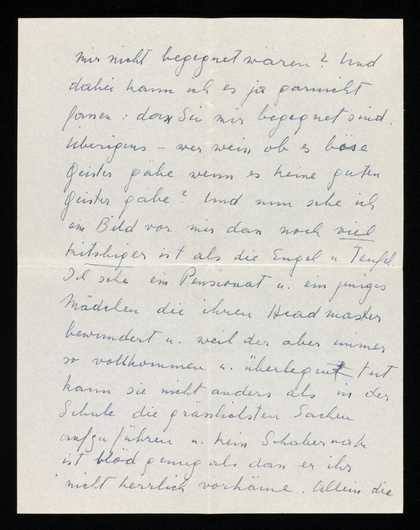 mir nicht begegnet wären? Und
dabei kann ich es ja garnicht
fassen: dass Sie mir begegnet sind.
Übrigens – wer weiss ob es böse
Geister gäbe wenn es keine guten
Geister gäbe? Und nun sehe ich
ein Bild vor mir das noch viel
kitschiger ist als die Engel u. Teufel
Ich sehe ein Pensionat u. ein junges
Mädchen die ihren Headmaster
bewundert u. weil der aber immer
so vollkommen u. überlegen tut
kann sie nicht anders als in der
Schule die grässlichsten Sachen
aufzuführen u. kein Schabernak
ist blöd genug als dass er ihr
nicht herrlich vorkäme. Allein die